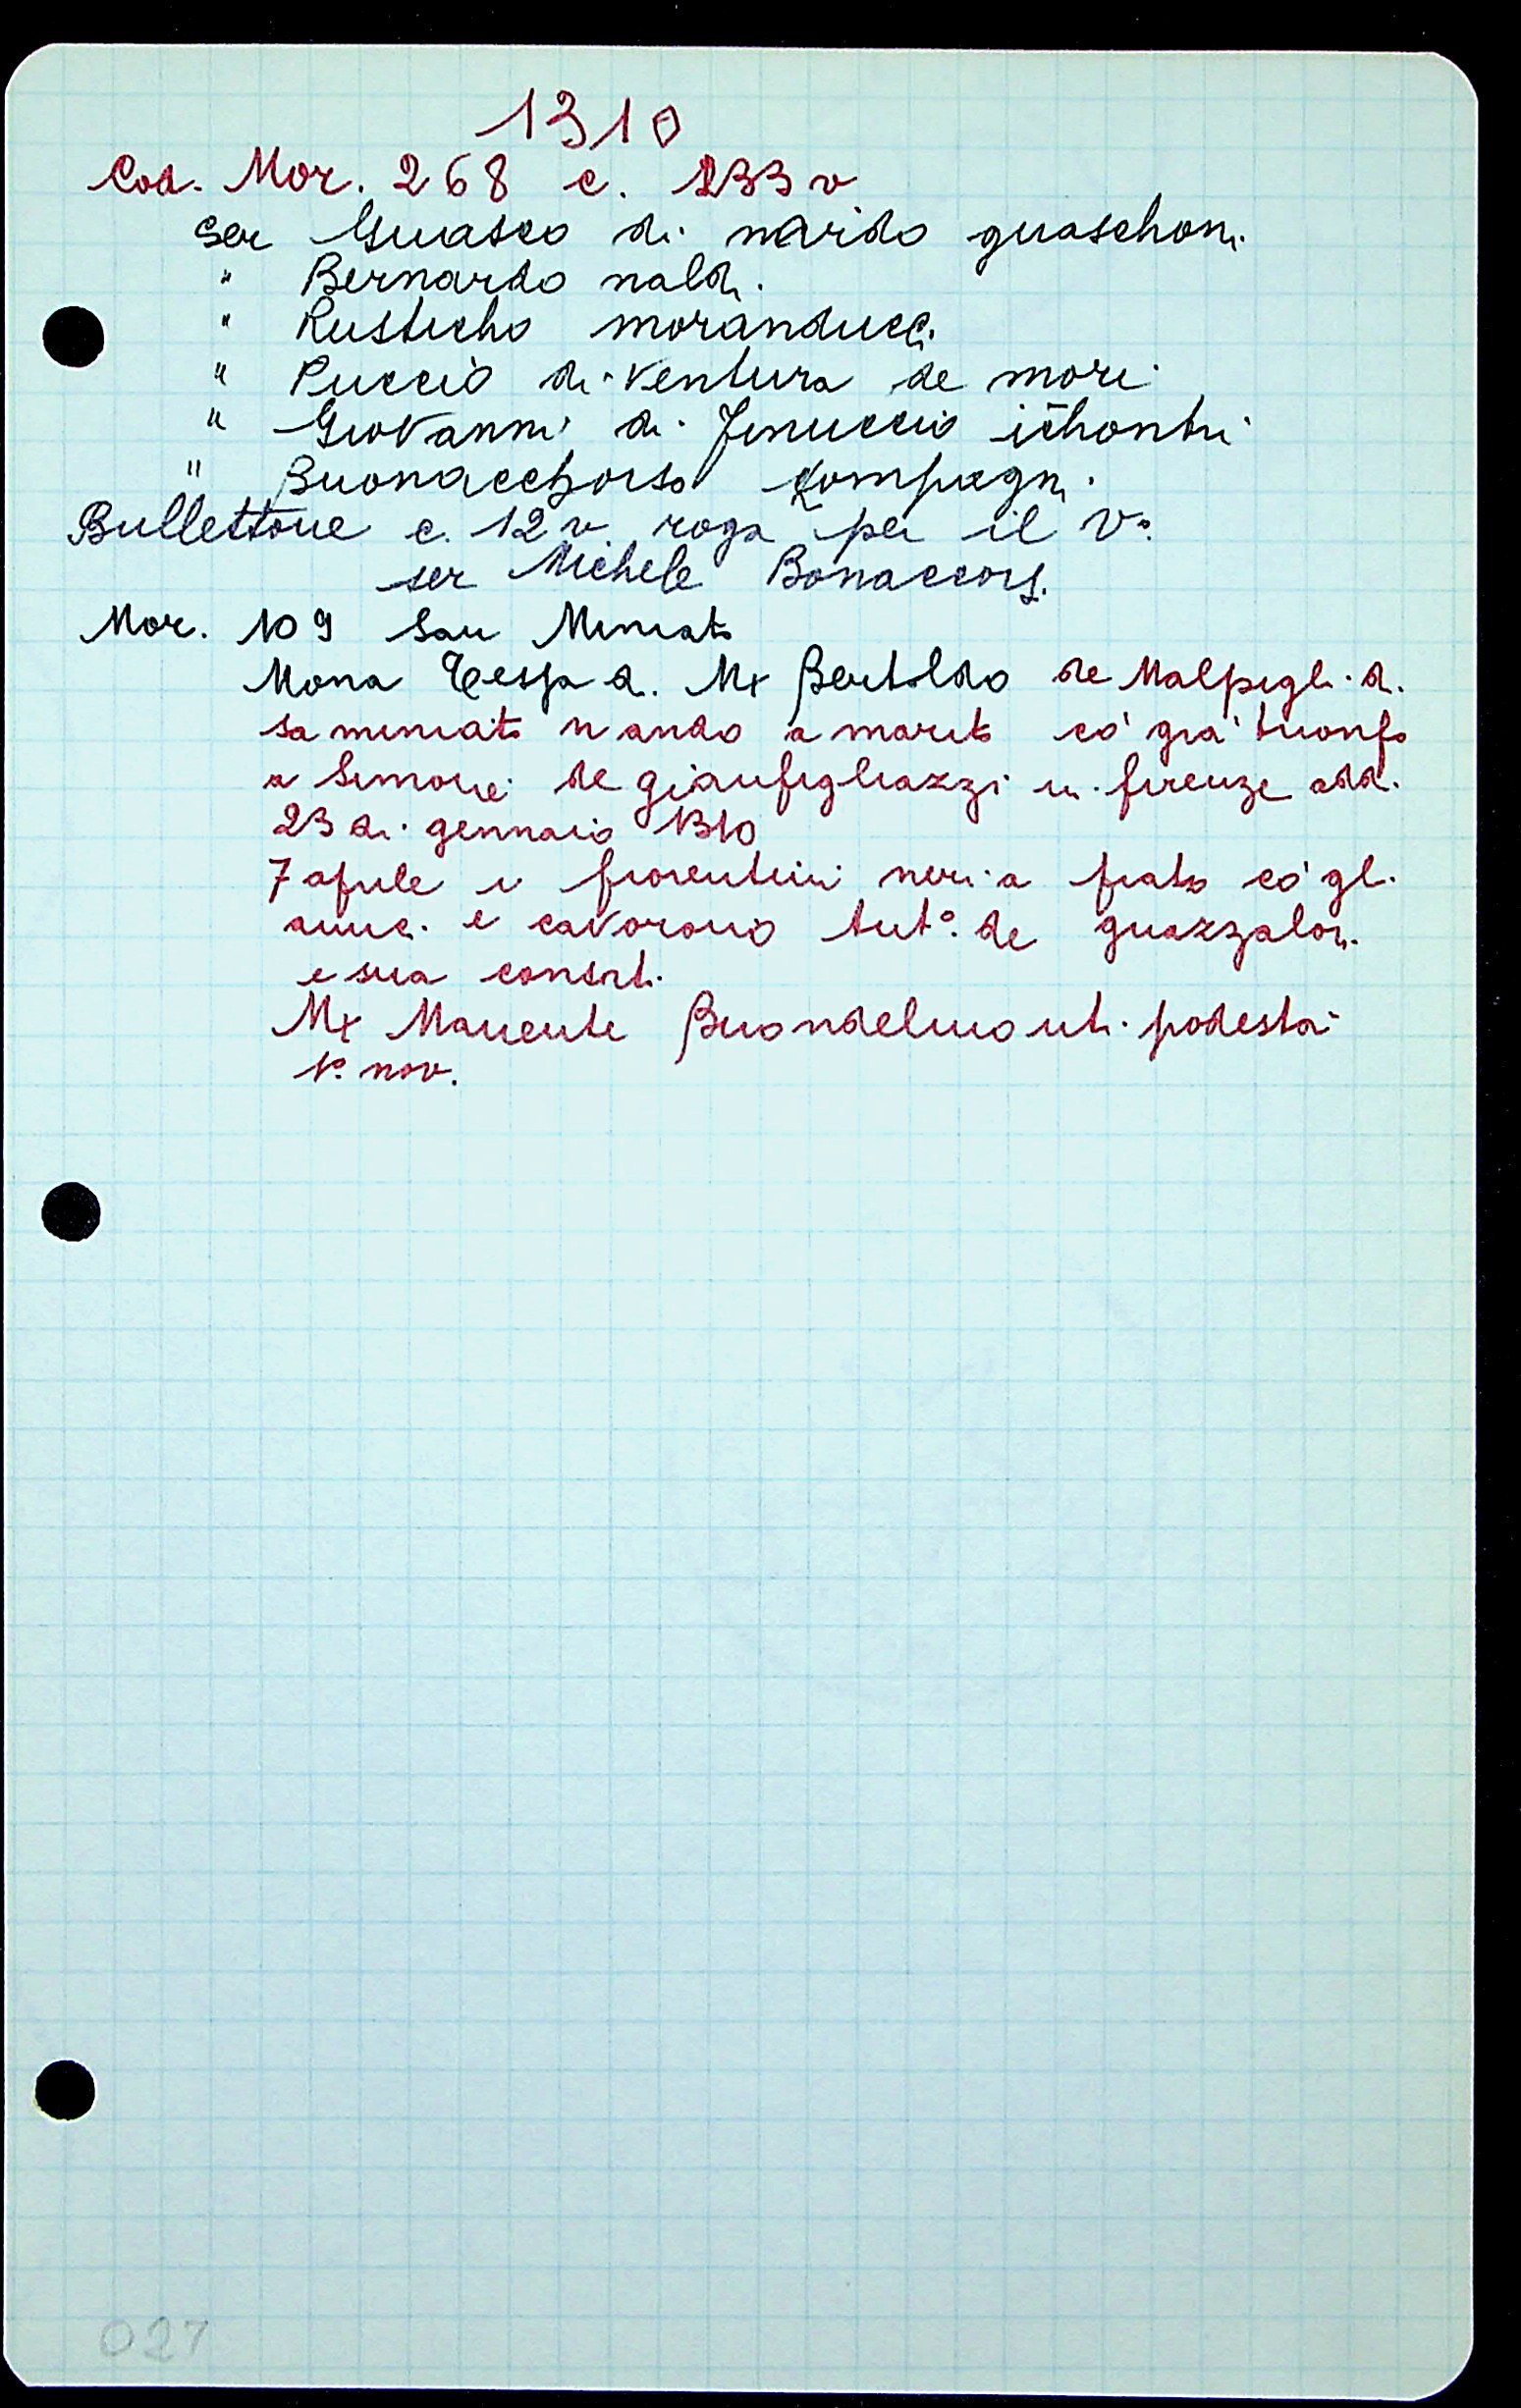 1310
Cod. Mor. 268 c. 233 v
Ser Guasco di nardo guaschoni
" Bernardo naldi.
" Rusticho moranducci
" Puccio di Ventura de mori
" Giovanni di Jinuccio ichontri
" Buonacchorso kompagni.
Bullettone c. 12 v. roga per il Vo
ser Michele Bonaccorsi.
Mor. 109 San Miniato
Mona Tessa di Mx Bertoldo de Malpigli di
sa miniato n ando a marito co gra trionfo
a Simone de gianfigliazzi in firenze add.
23 di gennaio 1310
7 aprile i fiorentini neri a prato co gl.
amici e cavorono tuto de guazzalori
e sua consrti.
Mx Manente Buondelmonti podestà
1o nov.
027